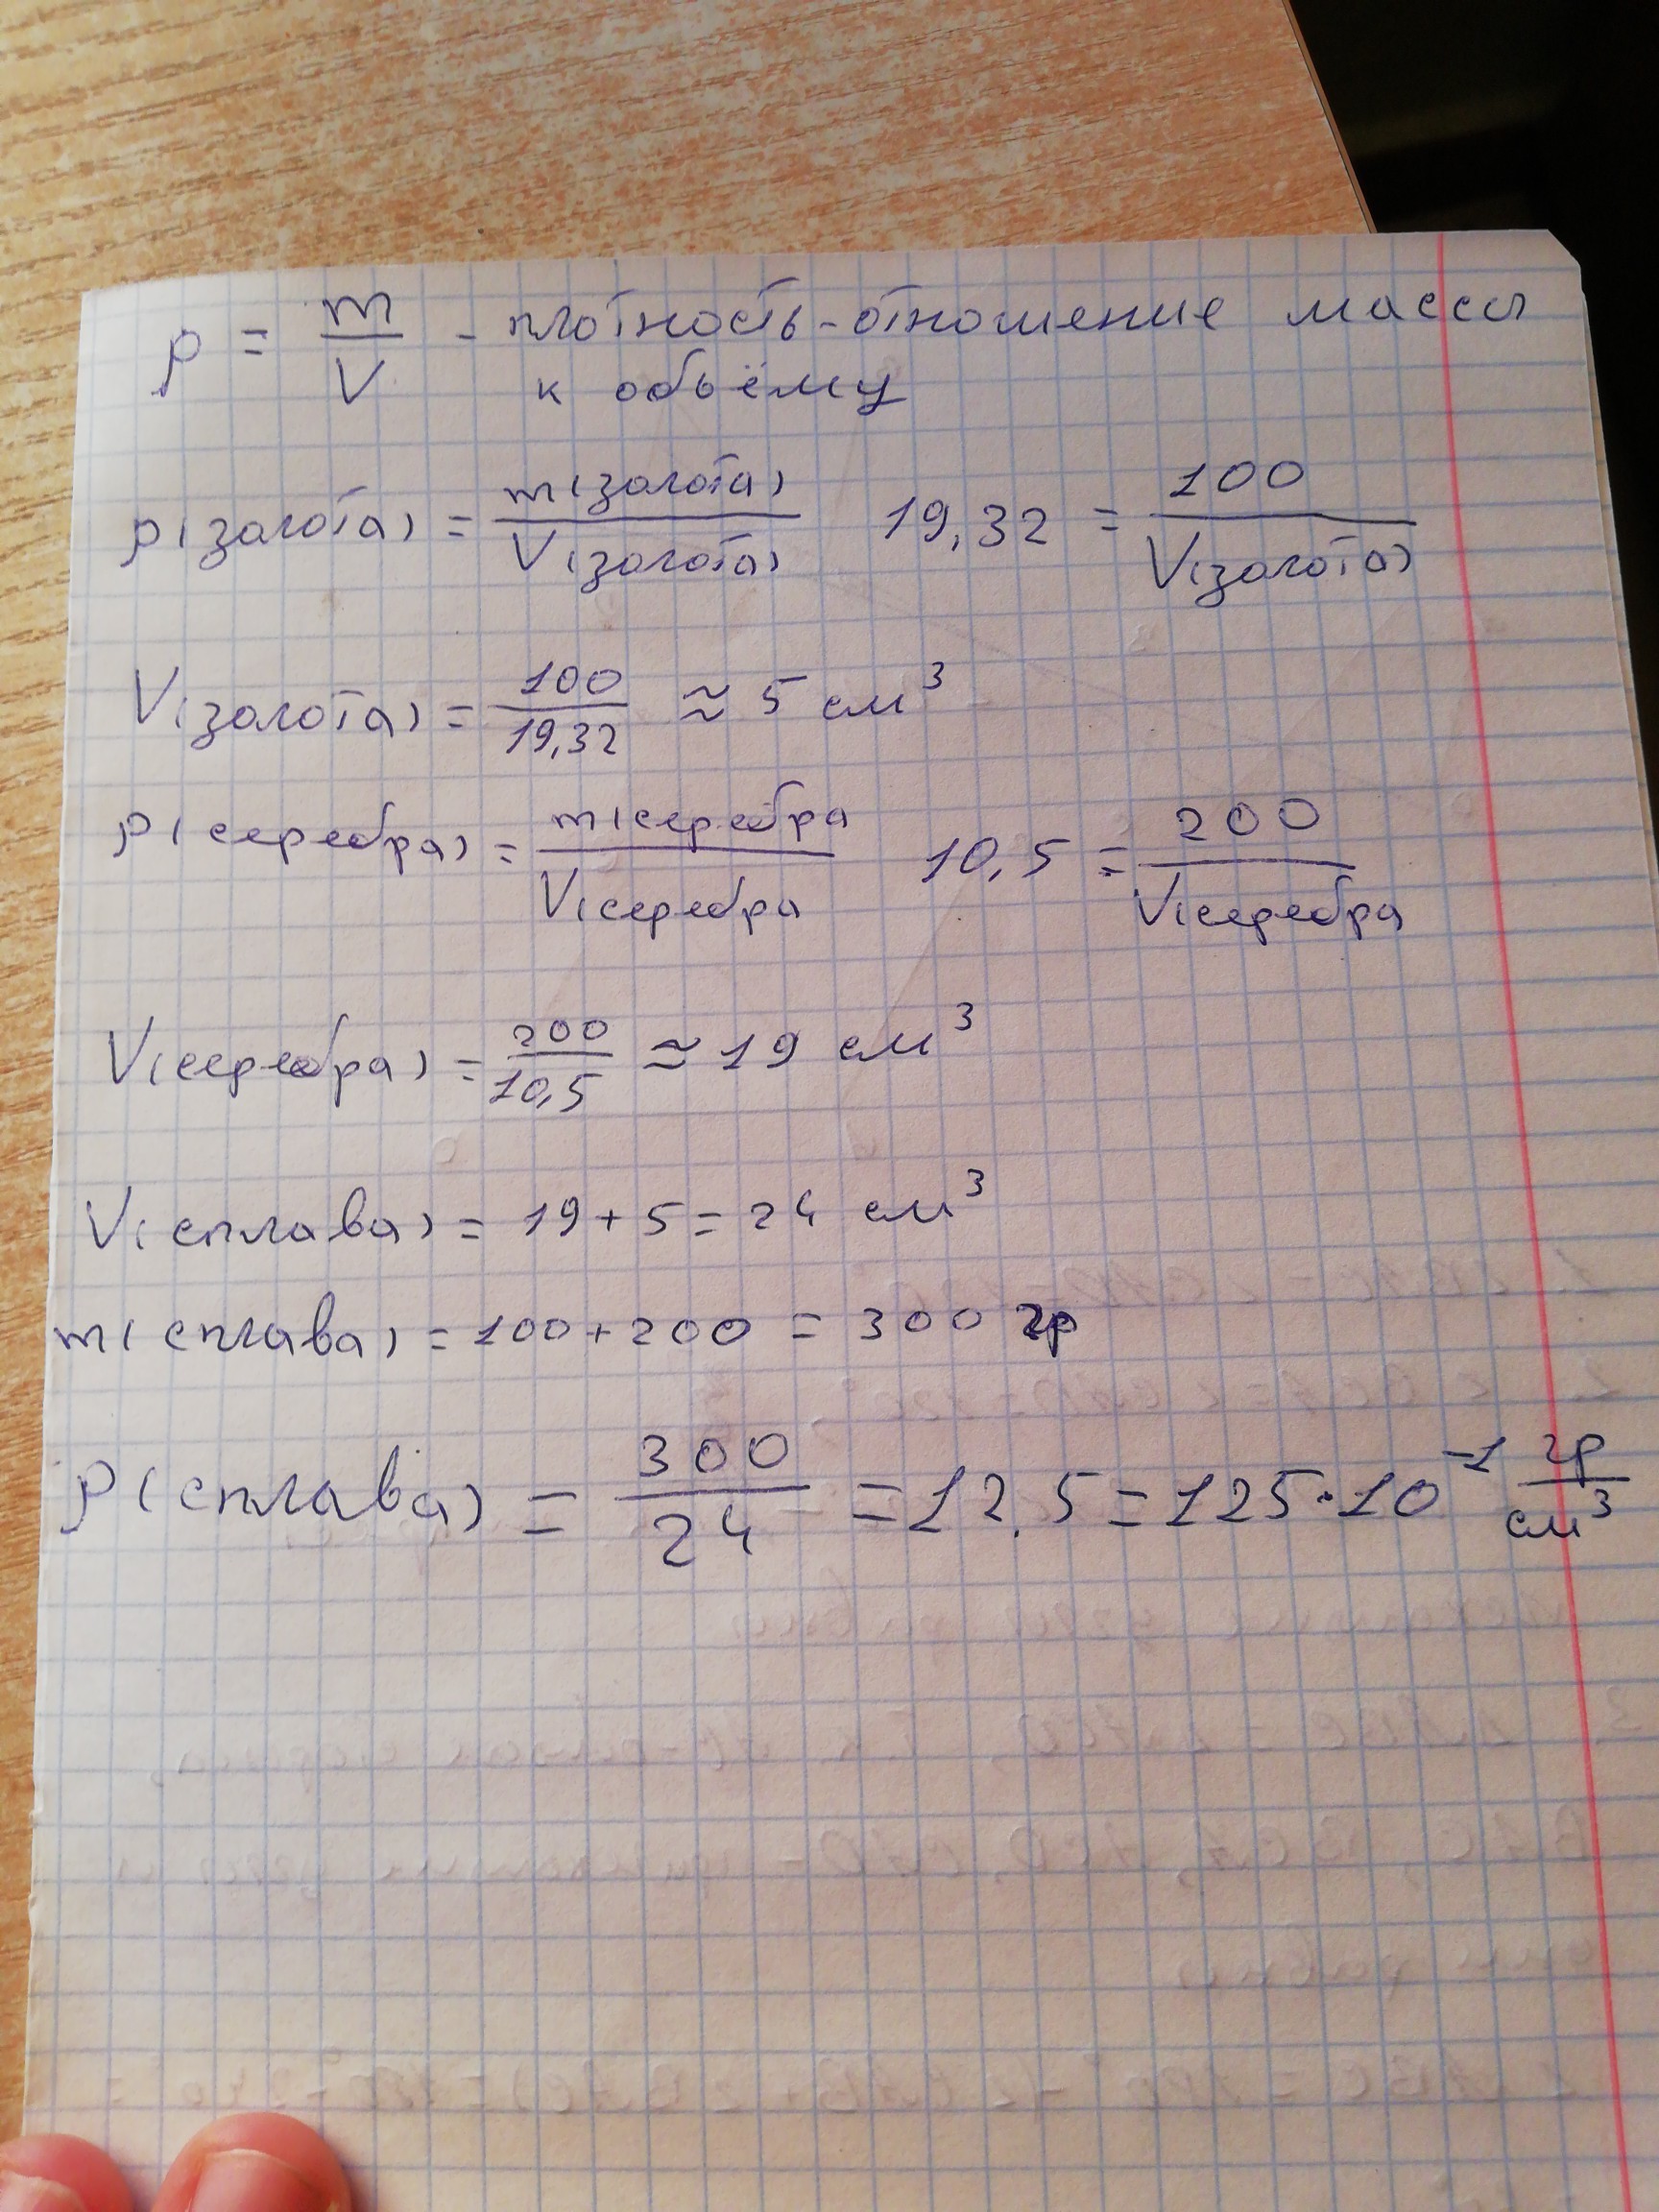 ρ = m/V - плотность - отношение массы
к объёму
ρ(золота) = m(золота)/V(золота) 19,32 = 100/V(золота)
V(золота) = 100/19,32 ≈ 5 см³
ρ(серебра) = m(серебра/V(серебра 10,5 = 200/V(серебра
V(серебра) = 200/10,5 ≈ 19 см³
V(сплава) = 19 + 5 = 24 см³
m(сплава) = 100 + 200 = 300 гр
ρ(сплава) = 300/24 = 12,5 = 125·10⁻¹ гр/см³